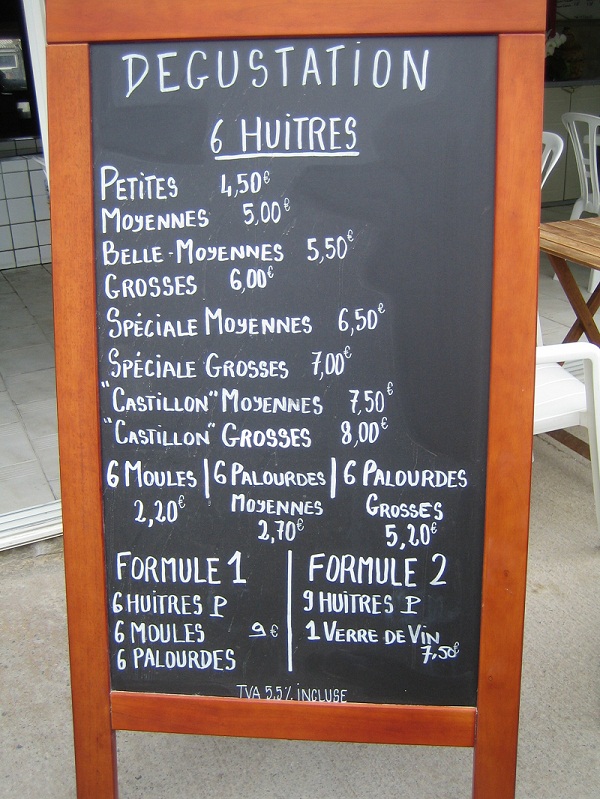 DEGUSTATION
6 HUiTRES
PETiTES 4,50€
MOYENNES 5,00€
BELLE-MOYENNES 5,50€
GROSSES 6,00€
SPÉCiALE MOYENNES 6,50€
SPÉCiALE GROSSES 7,00€
"CASTiLLON" MOYENNES 7,50€
"CASTiLLON" GROSSES 8,00€
6 MOULES | 6 PALOURDES | 6 PALOURDES
2,20€ MOYENNES GROSSES
2,70€ 5,20€
FORMULE 1
6 HUiTRES P
6 MOULES 9€
6 PALOURDES
FORMULE 2
9 HUiTRES P
1 VERRE DE ViN
7,50€
TVA 5.5% iNCLUSE